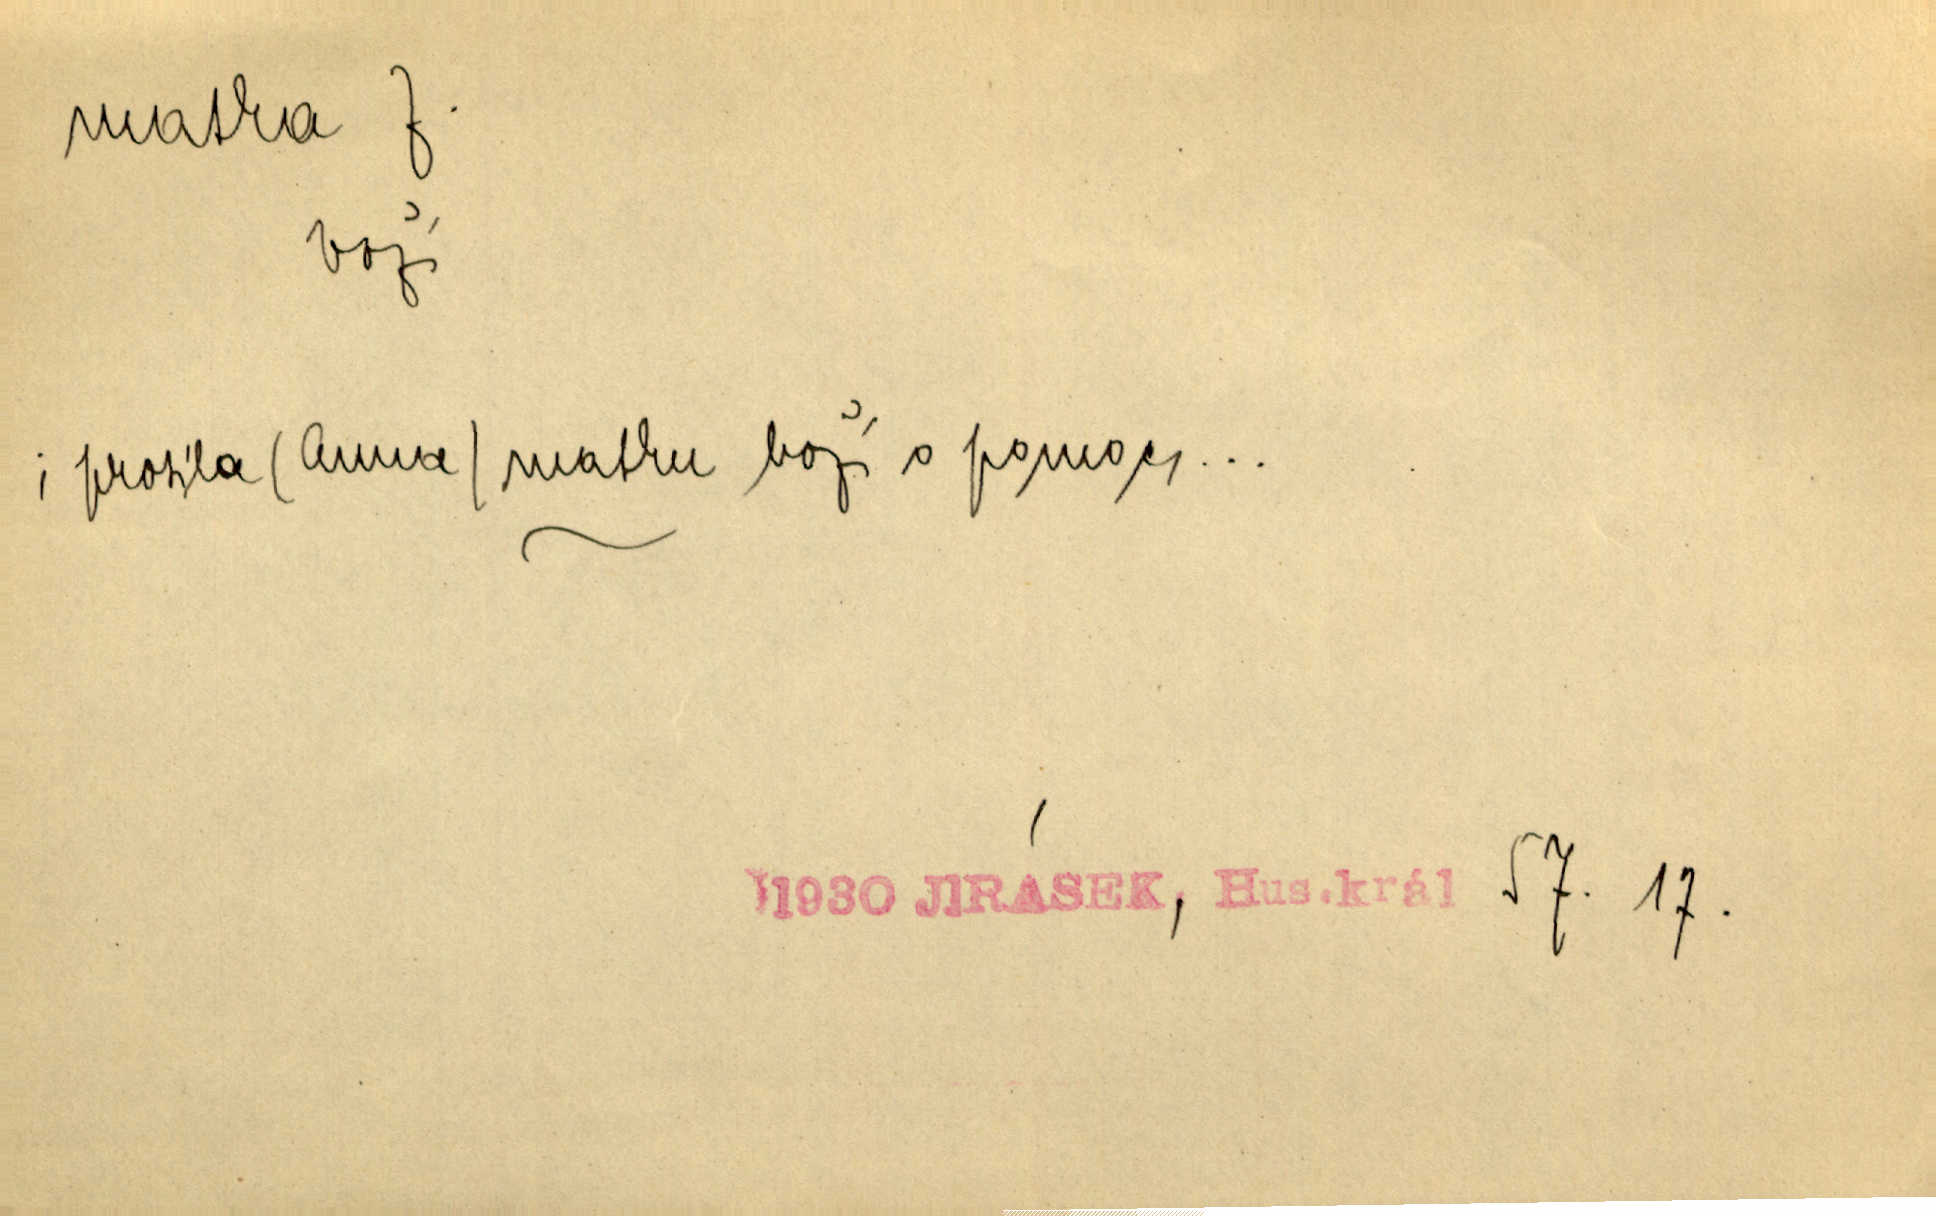 matka f.
boží
i prosila (Anna) matku boží o pomoc, ...
1930 JIRÁSEK, Hus.král 57. 17.